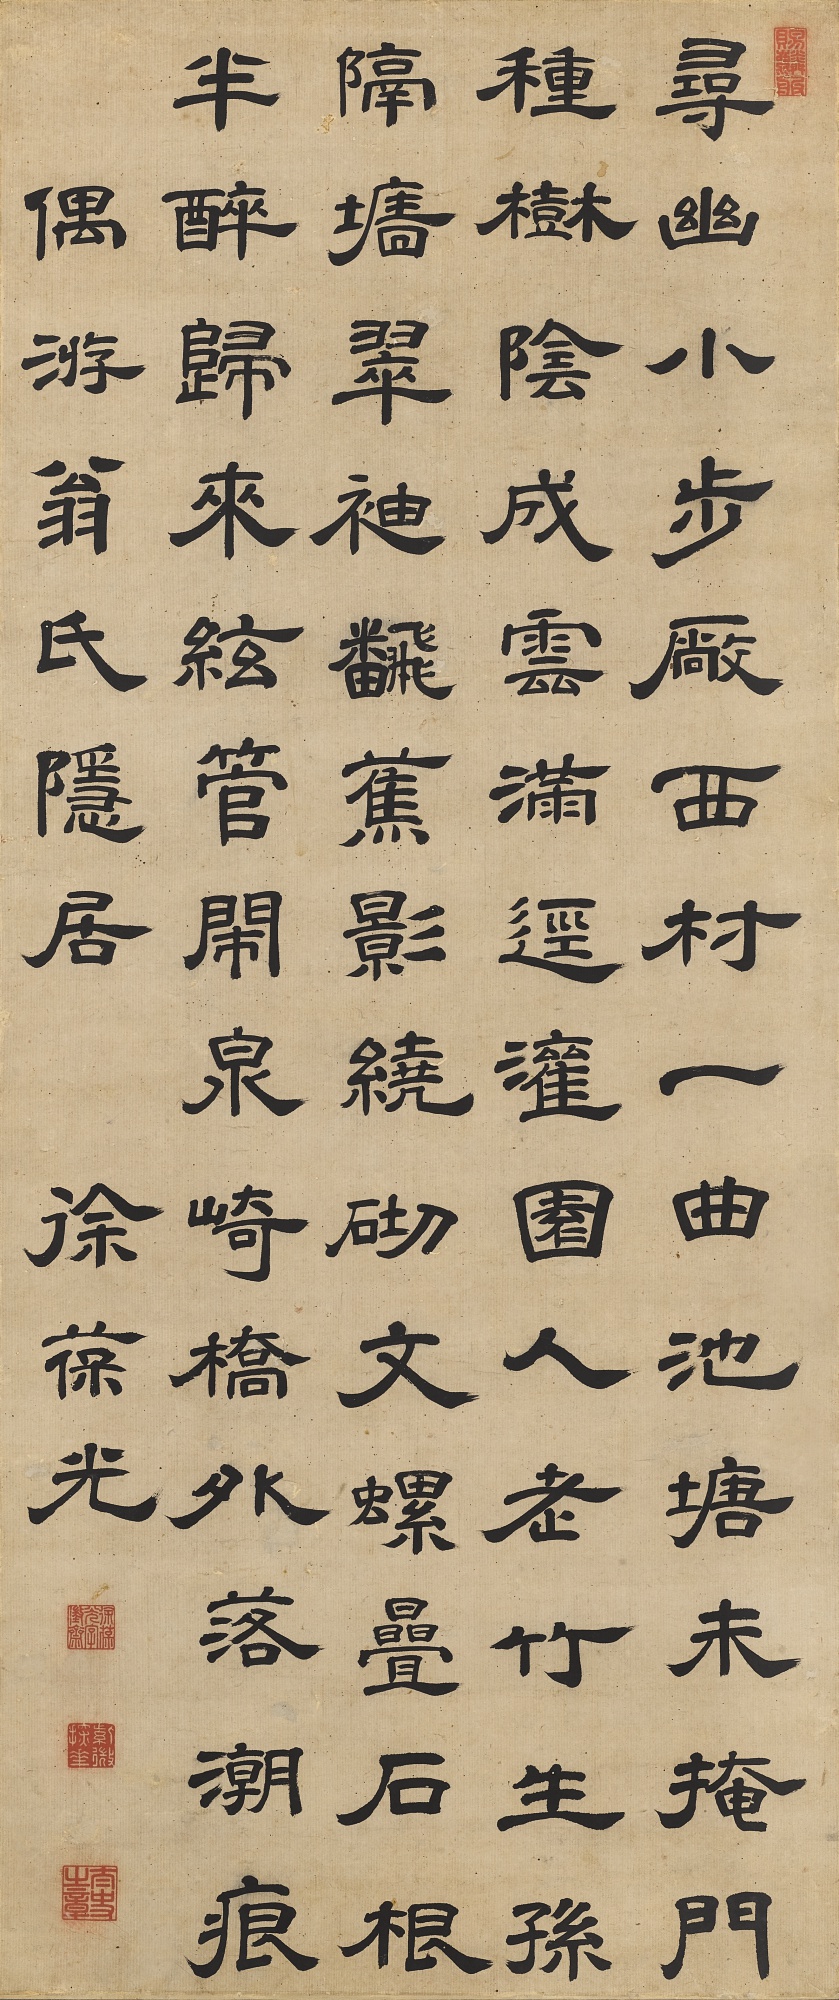 尋幽小步厰西村一曲池塘未掩門
種樹陰成雲滿逕灌園人老竹生孫
隔墻翠袖飜蕉影繞砌文螺疊石根
半醉歸來絃管閙泉崎橋外落潮痕
偶游翁氏隱居 徐葆光